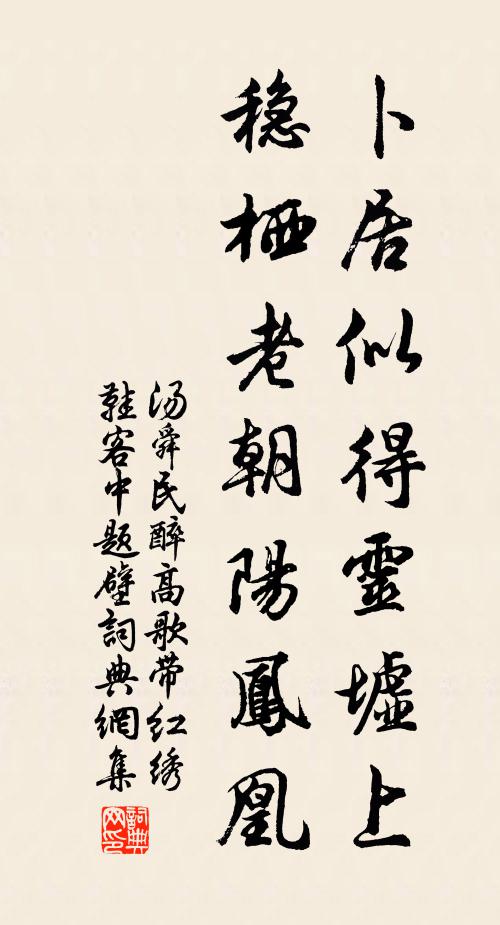 卜居似得靈墟上
穏栖老朝陽鳳凰
汤舜民醉高歌带红绣
鞋客中题壁詞典網集
詞典网印